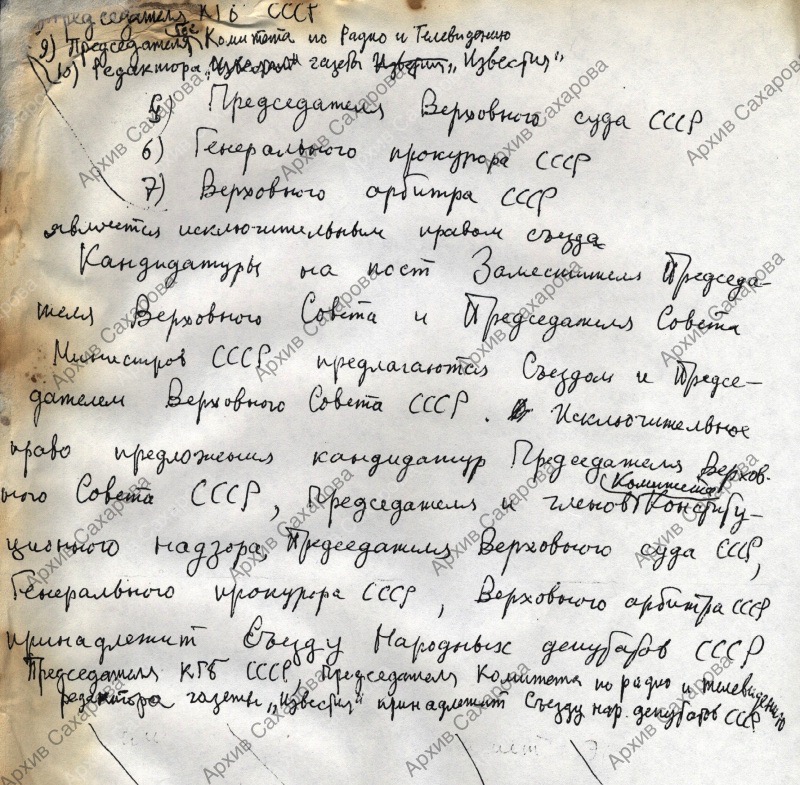 Председателя КГБ СССР
9) Председателя Гос Комитета по Радио и Телевидению
10) Редактора газеты „Известия“
5) Председателя Верховного суда СССР
6) Генерального прокурора СССР
7) Верховного арбитра СССР
является исключительным правом съезда
Кандидатуры на пост Заместителя Председа-
теля Верховного Совета и Председателя Совета
Министров СССР предлагаются Съездом и Предсе-
дателем Верховного Совета СССР. Исключительное
право предложения кандидатур Председателя Верхов-
ного Совета СССР, Председателя и членов Комитета Конститу-
ционного надзора, Председателя Верховного суда СССР,
Генерального прокурора СССР, Верховного арбитра СССР
принадлежит Съезду Народных депутатов СССР
Председателя КГБ СССР, Председателя Комитета по радио и телевидению
редактора газеты „Известия“ принадлежит Съезду нар. депутатов СССР
Архив Сахарова